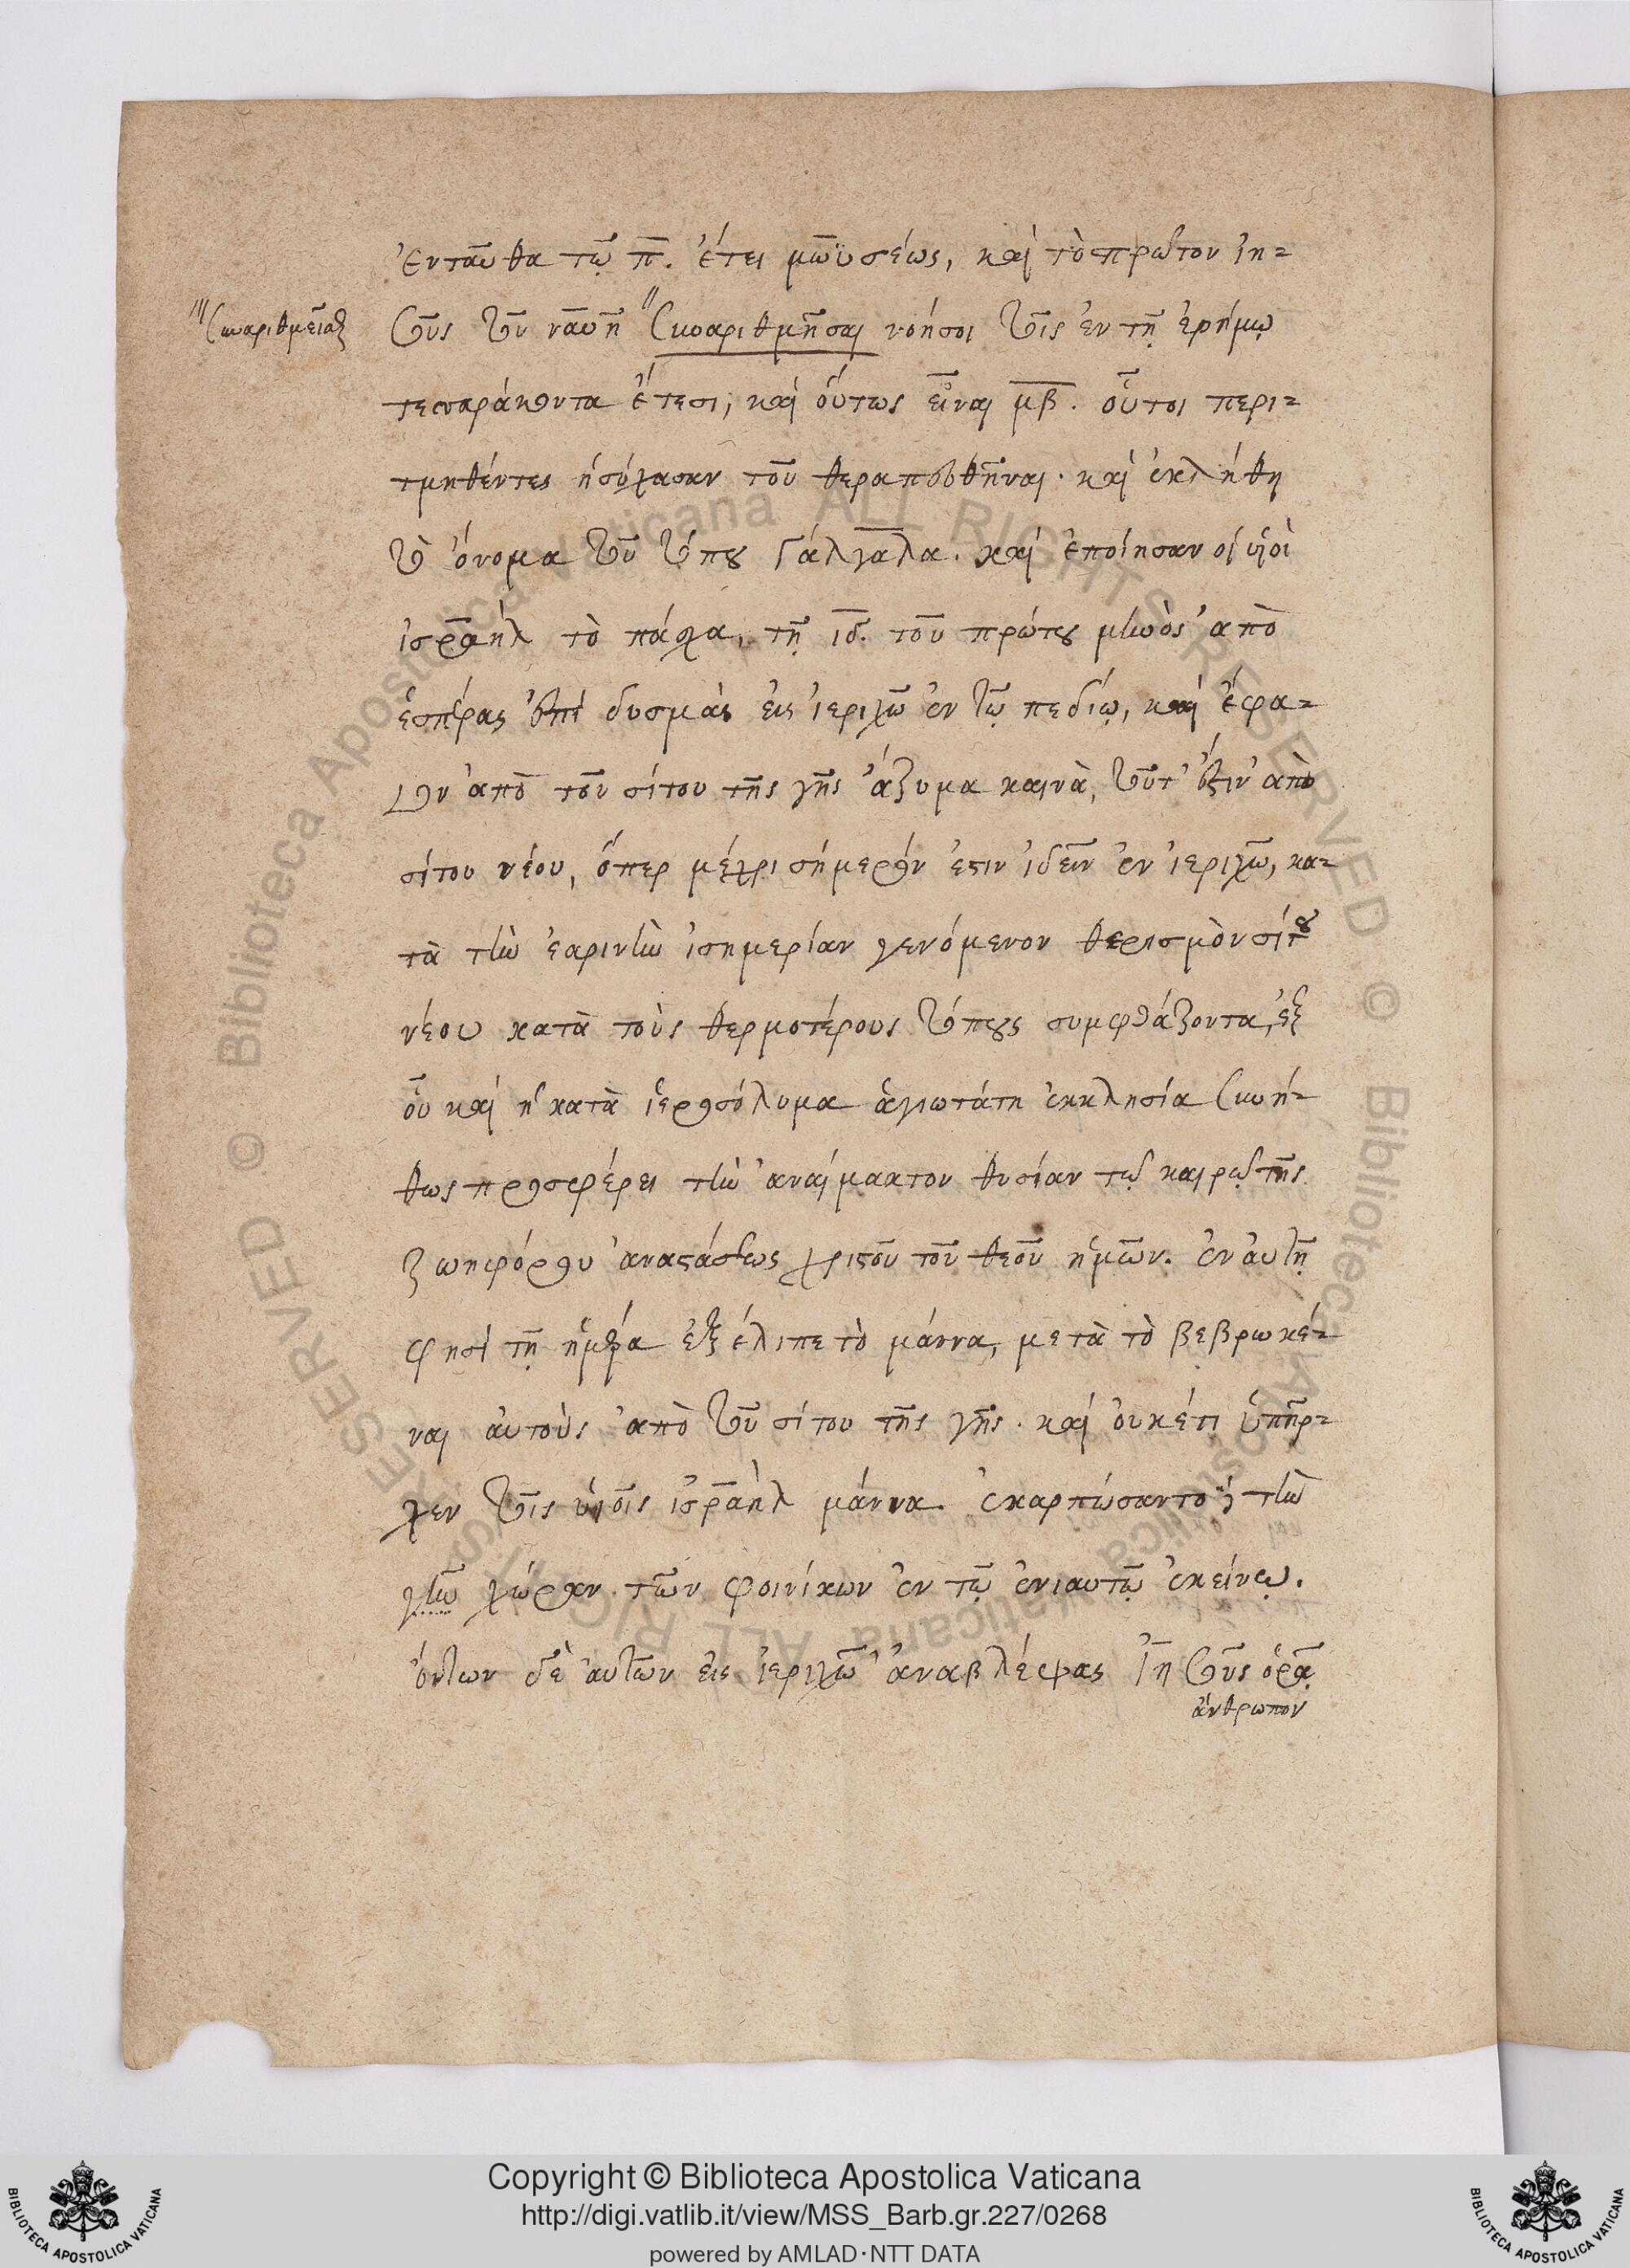 ἐνταῦθα τῷ π. ἔτει μωϋσέως, καὶ τὸ πρῶτον ἰη-
συναριθμεῖσθαι
σοῦς τοῦ ναυῆ συναριθμῆσαι νοήσοι τοῖς ἐν τῇ ἐρήμῳ
τεσσαράκοντα ἔτεσι, καὶ οὕτως εἶναι μβ. οὗτοι περι-
τμηθέντες ἡσύχασαν τοῦ θεραπευθῆναι. καὶ ἐκλήθη
τὸ ὄνομα τοῦ τόπου Γάλγαλα. καὶ ἐποίησαν οἱ υἱοὶ
ἰσραὴλ τὸ πάσχα, τῇ ιδ. τοῦ πρώτου μηνὸς ἀπὸ
ἑσπέρας ἐπὶ δυσμὰς εἰς ἱεριχῶ ἐν τῷ πεδίῳ, καὶ ἔφα-
γον ἀπὸ τοῦ σίτου τῆς γῆς ἄζυμα καινὰ, τοῦτ' ἔστιν ἀπὸ
σίτου νέου, ὅπερ μέχρι σήμερόν ἐστιν ἰδεῖν ἐν ἱεριχῶ, κα-
τὰ τὴν ἐαρινὴν ἰσημερίαν γενόμενον θερισμὸν σίτου
νέου κατὰ τοὺς θερμοτέρους τόπους συμφθάζοντα, ἐξ
οὗ καὶ ἡ κατὰ ἱεροσόλυμα ἁγιωτάτη ἐκκλησία συνή-
θως προσφέρει τὴν ἀναίμακτον θυσίαν τῷ καιρῷ τῆς
ζωηφόρου ἀναστάσεως χριστοῦ τοῦ θεοῦ ἡμῶν. ἐν αὐτῇ
φησὶ τῇ ἡμέρᾳ ἐξέλιπε τὸ μάννα, μετὰ τὸ βεβρωκέ-
ναι αὐτοὺς ἀπὸ τοῦ σίτου τῆς γῆς. καὶ οὐκέτι ὑπῆρ-
χεν τοῖς υἱοῖς ἰσραὴλ μάννα. ἐκαρπώσαντο τὴν
γῆν χώραν τῶν φοινίκων ἐν τῷ ἐνιαυτῷ ἐκείνῳ.
ὄντων δὲ αὐτῶν εἰς ἱεριχῶ ἀναβλέψας Ἰησοῦς ὁρᾷ
ἄνθρωπον
Copyright © Biblioteca Apostolica Vaticana
http://digi.vatlib.it/view/MSS_Barb.gr.227/0268
powered by AMLAD·NTT DATA